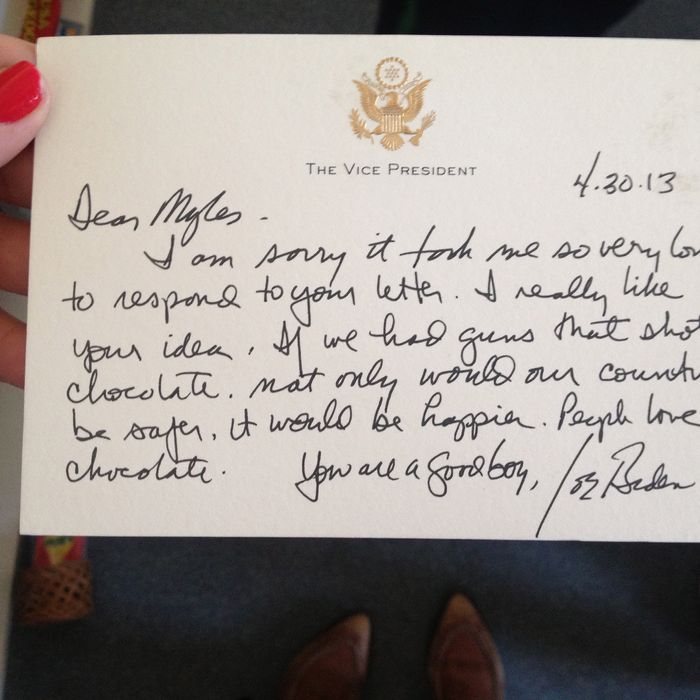 THE VICE PRESIDENT
4.30.13
Dear Myles.
I am sorry it took me so very lon
to respond to your letter. I really like
your idea. If we had guns that shot
chocolate. not only would our countr
be safer, it would be happier. People love
chocolate. You are a good boy, Joe Biden